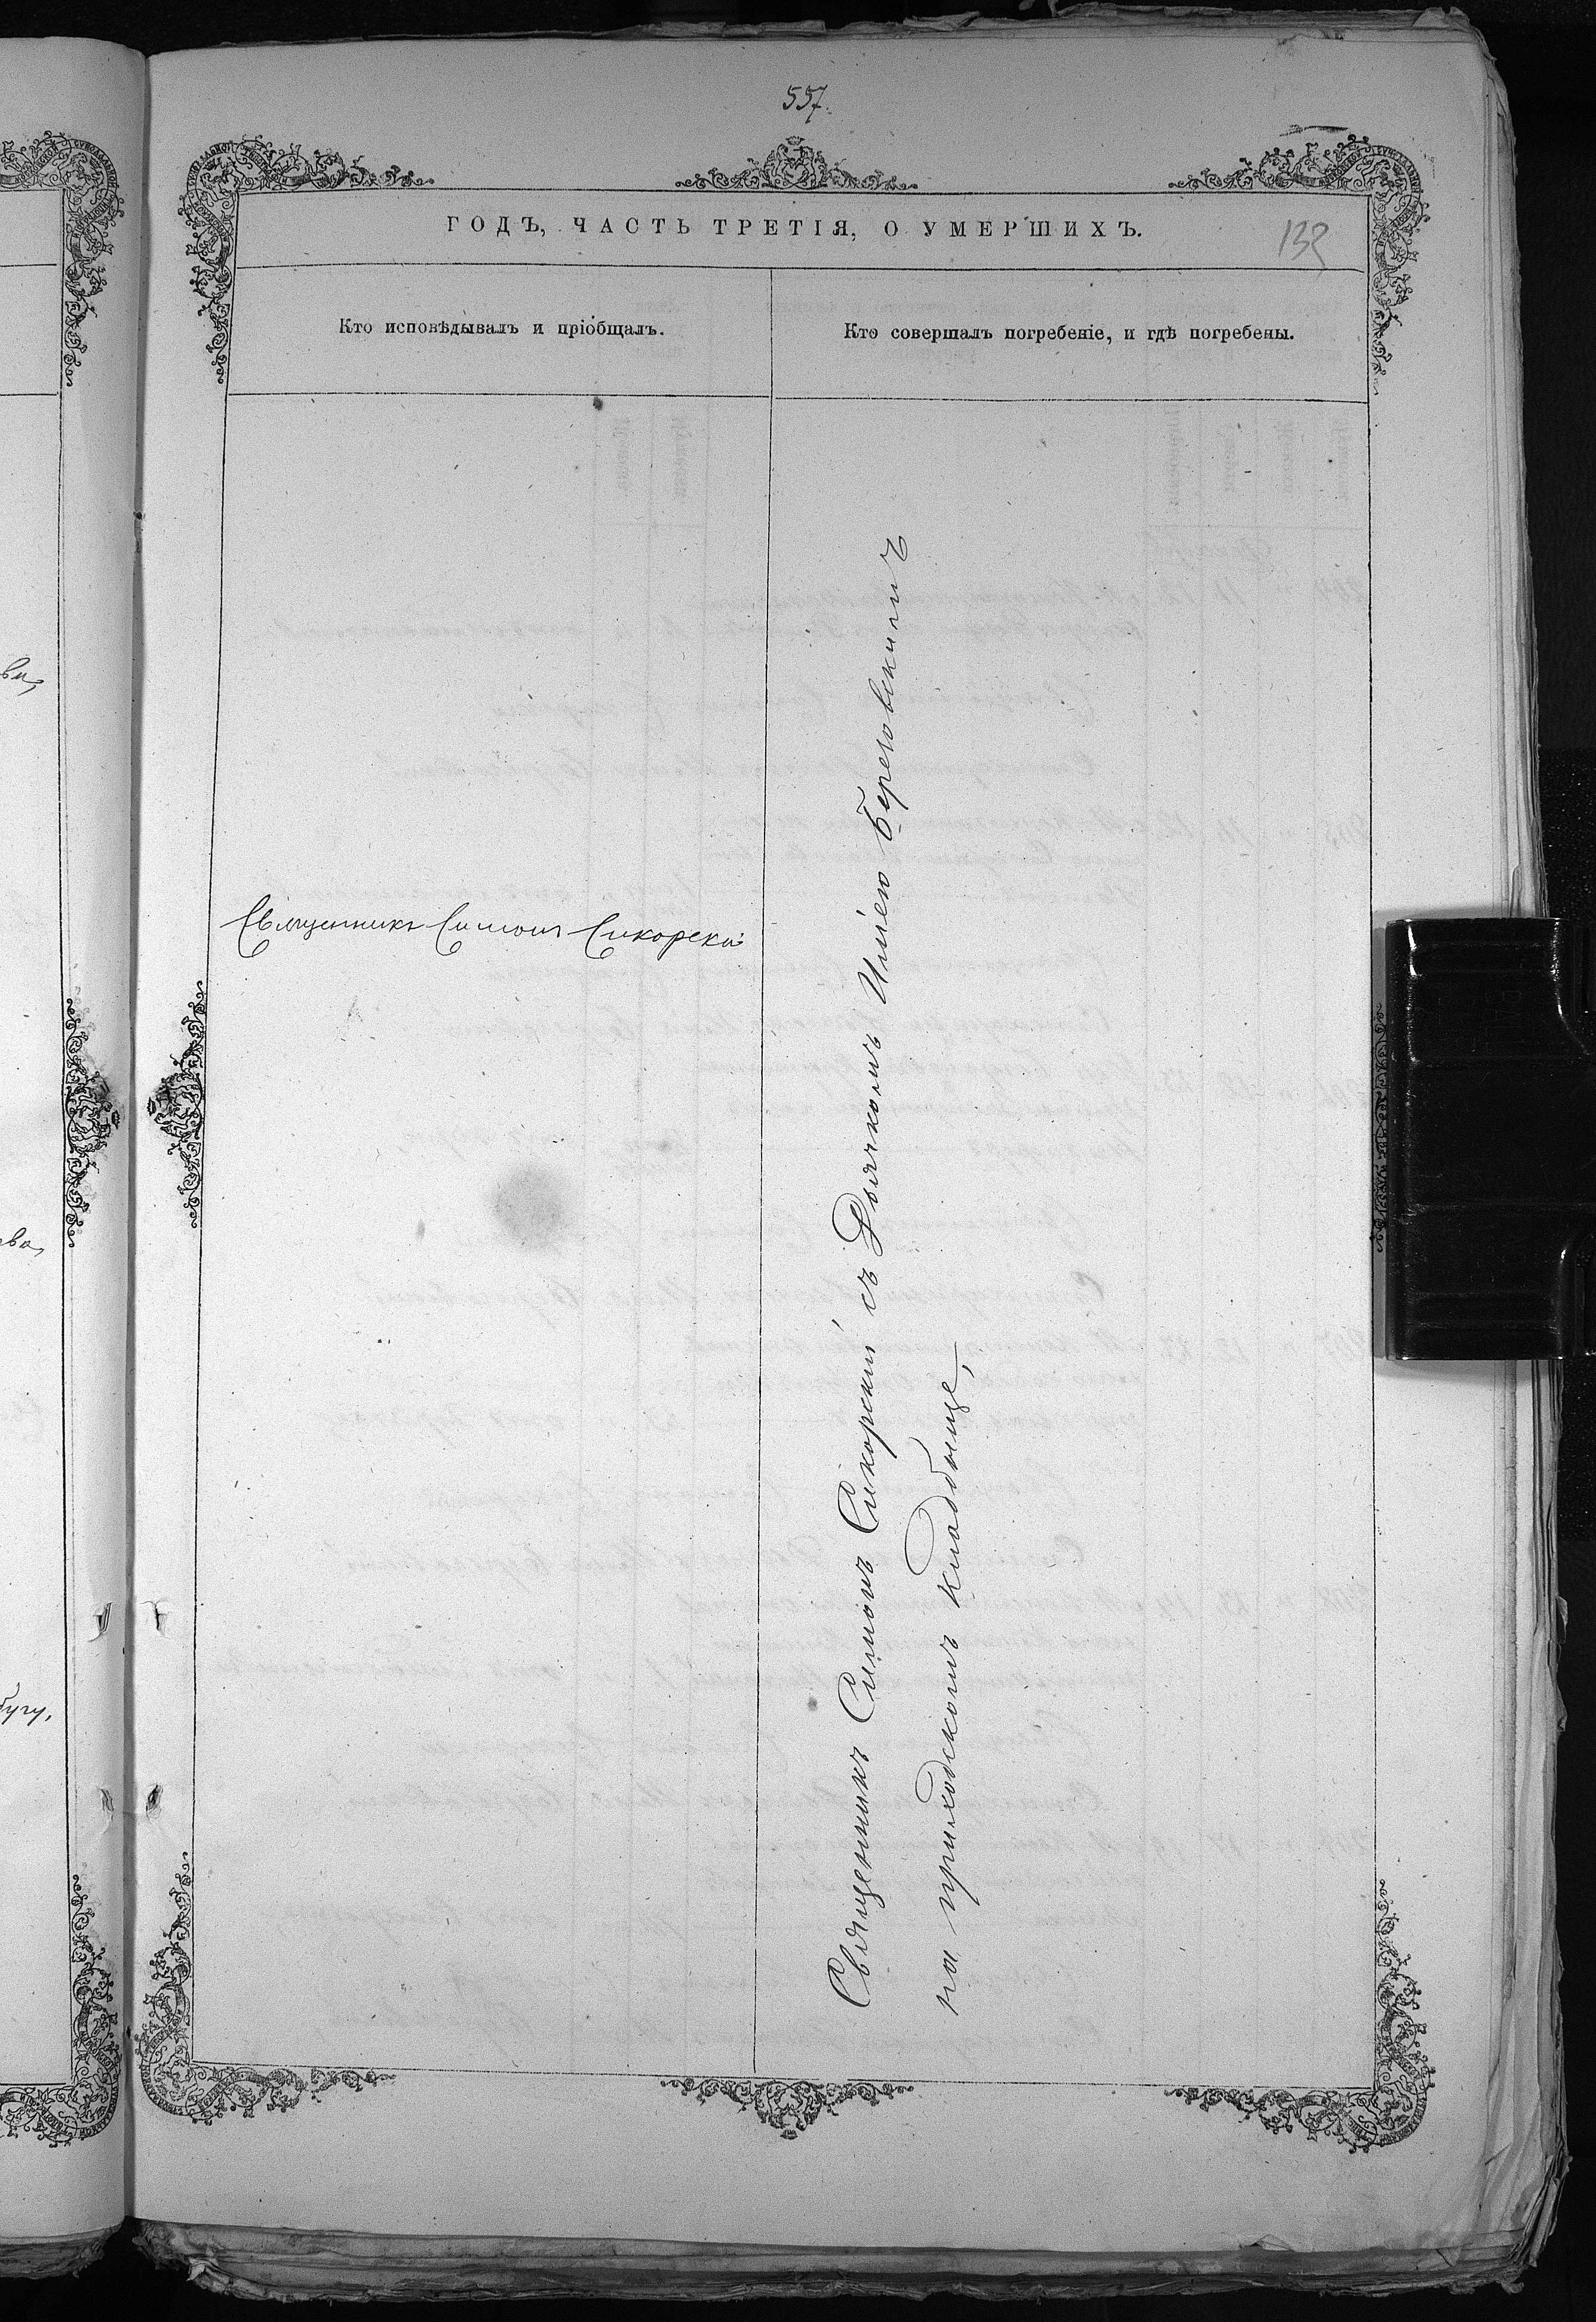 557.
ГОДЪ, ЧАСТЬ ТРЕТІЯ, О УМЕРШИХЪ.
Кто исповѣдывалъ и пріобщалъ.
Кто совершалъ погребеніе, и гдѣ погребены.
Священникъ Симонъ Сикорскій
Священникъ Симонъ Сикорскій съ Дьячкомъ Иліею Береговскимъ
на приходскомъ кладбище,